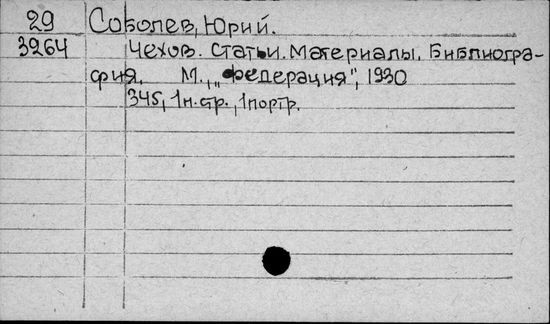 29 Соболев, Юрий.
3964 Чехов. Статьи. Материалы. Библиогра-
фия. М., „Федерация", 1930
345, 1н.стр., 1портр.